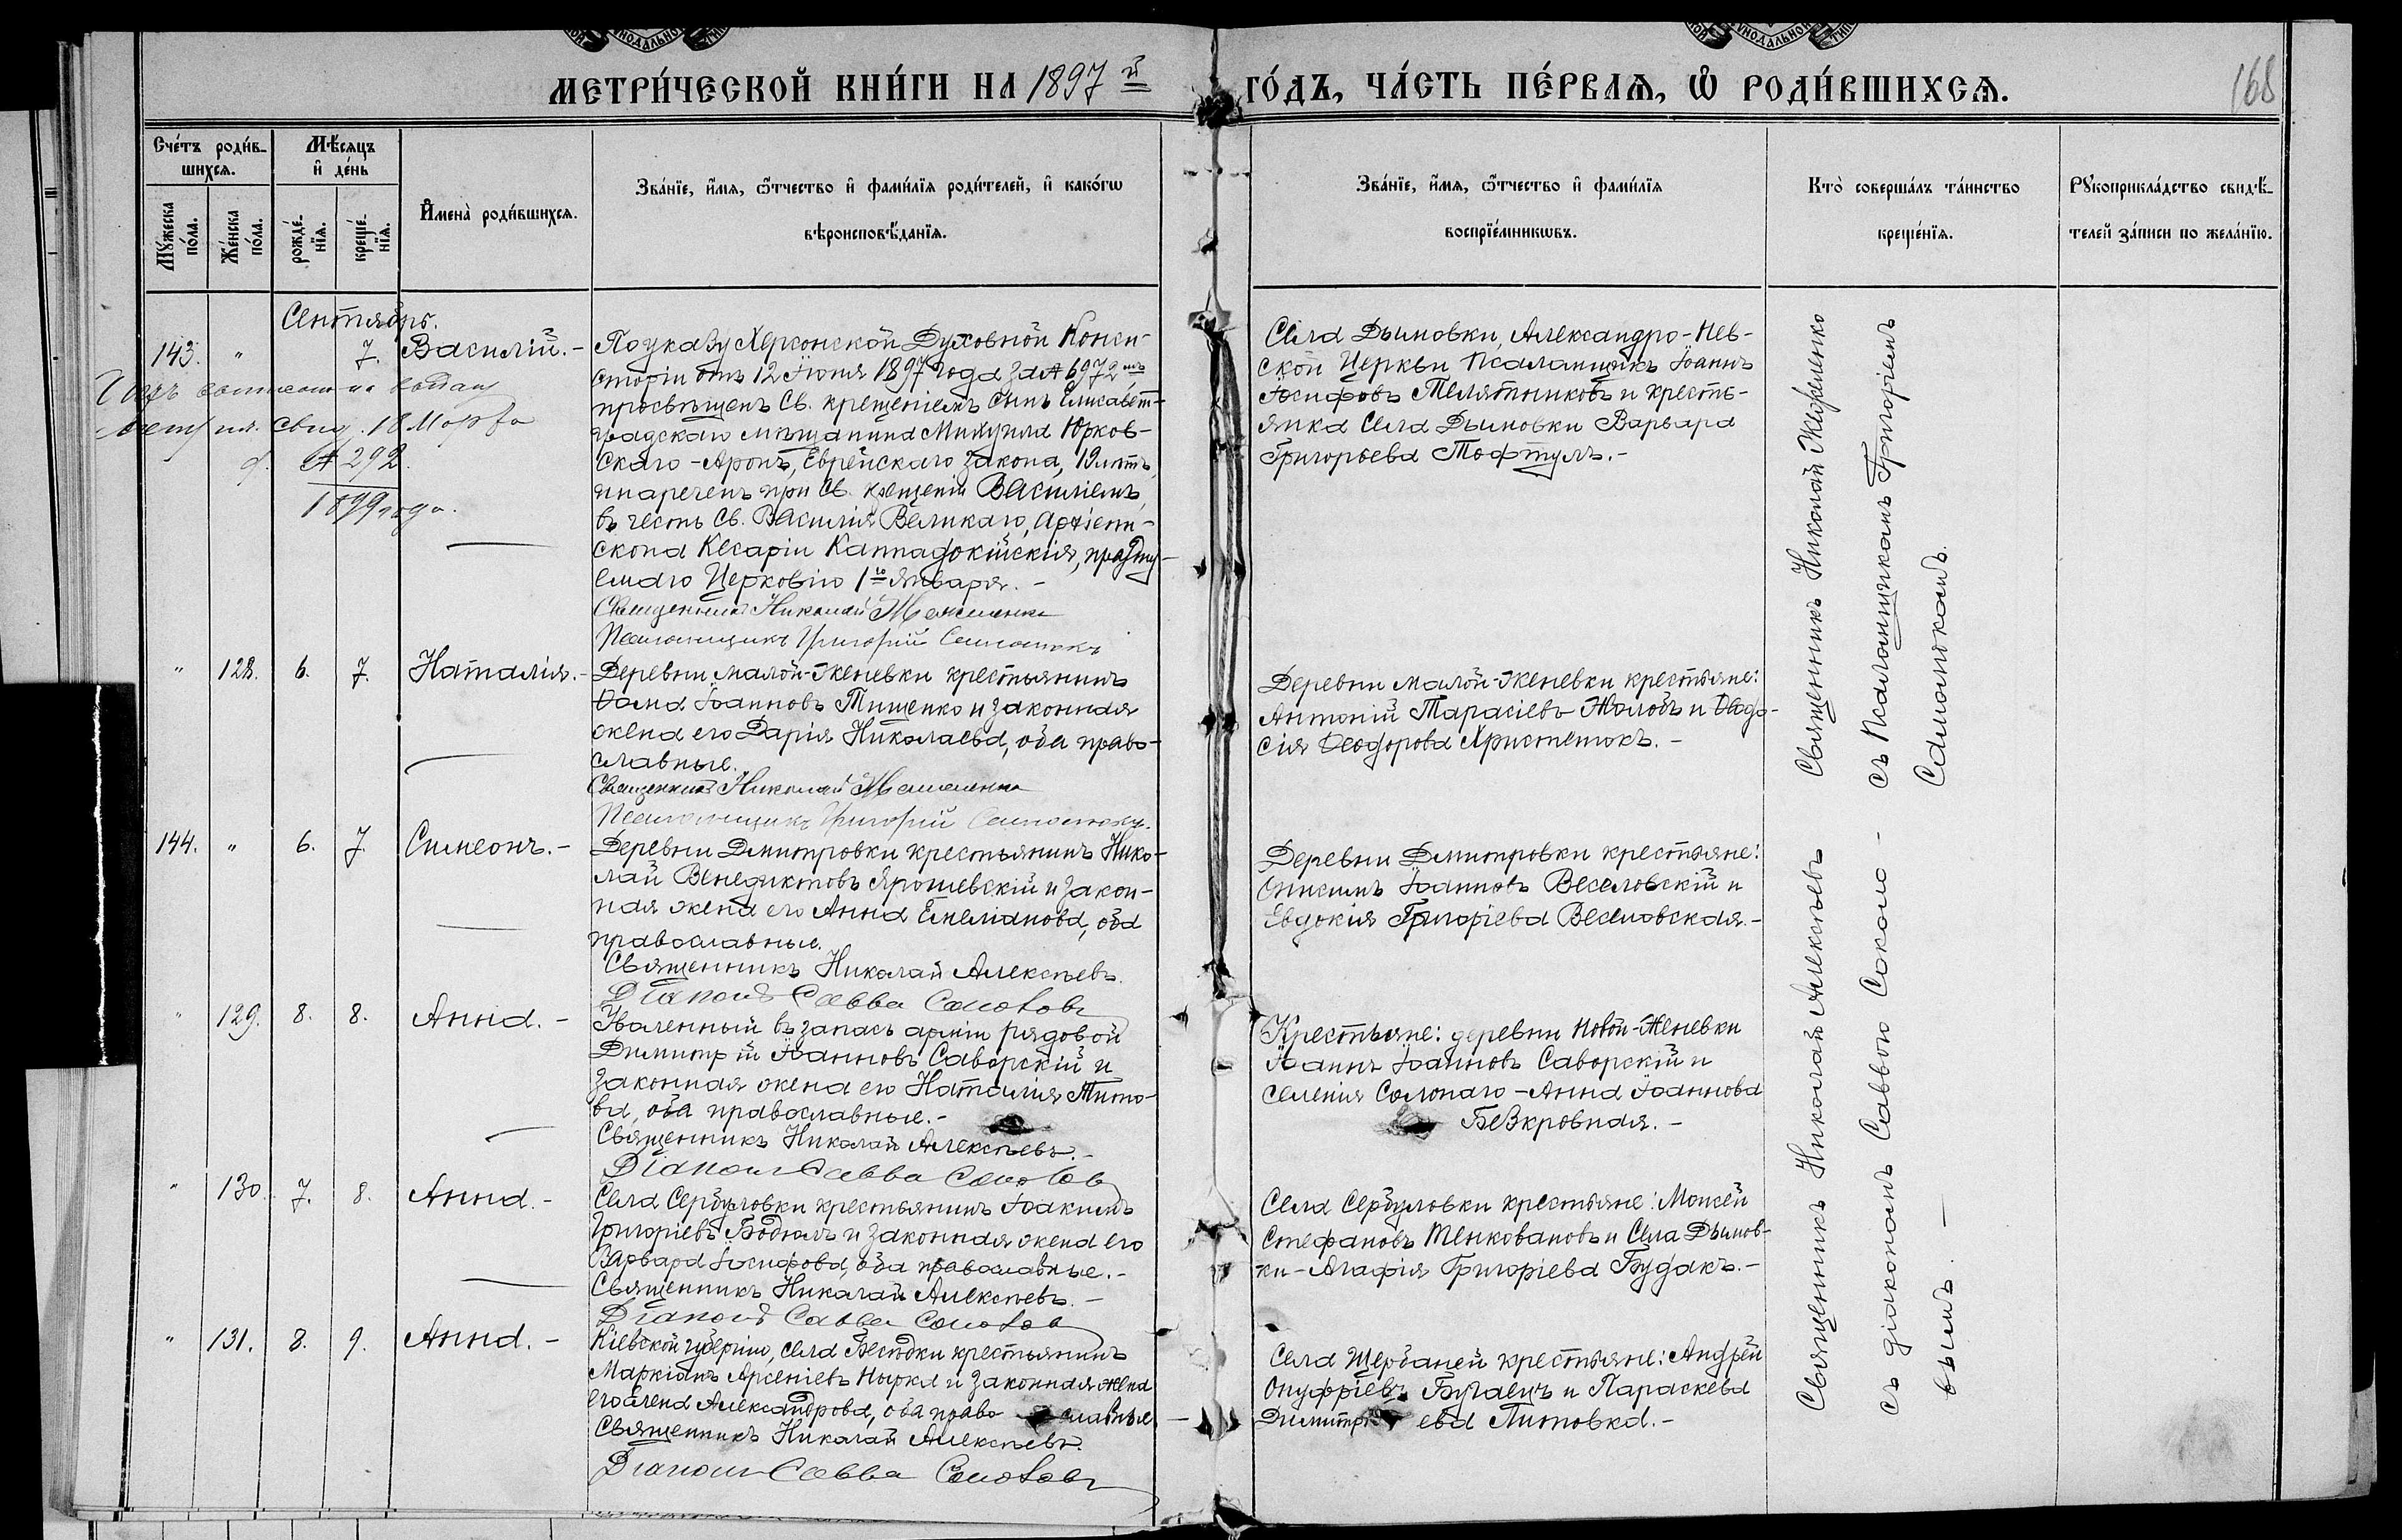 МЕТРИ́ЧЕСКОЙ КНИ́ГИ НА 1897 й ГО́ДЪ, ЧА́СТЬ ПЕ́РВАѦ, Ѡ҆ РОДИ́ВШИХСѦ.
168
Сче́тъ роди́в-
шихсѧ.
Мѣ́сяцъ
и҆ де́нь
Мꙋ́жеска
по́ла.
Же́нска
по́ла.
рожде́-
нїѧ.
креще́-
нїѧ.
И҆мена̀ роди́вшихсѧ.
Зва́нїе, и҆́мѧ, ѻ҆́тчество и҆ фами́лїѧ роди́телей, и҆ како́гѡ
вѣроисповѣ́данїѧ.
Зва́нїе, и҆́мѧ, ѻ҆́тчество и҆ фами́лїѧ
воспрїе́мникѡвъ.
Кто̀ соверша́лъ та́инство
креще́нїѧ.
Рꙋкоприкла́дство свидѣ́-
телей за́писи по жела́нїю.
Сентябрь.
143. " 7. Василій. -
По указу Херсонской Духовной Конси-
сторіи отъ 12 Іюня 1897 года за № 6972мъ
просвѣщенъ Св. крещеніемъ сынъ Елисавет-
градскаго мѣщанина Михуила Юрков-
скаго - Аронъ, Еврейскаго закона, 19 лѣтъ,
и нареченъ при Св. крещеніи Василіемъ
въ честь Св. Василія Великаго, Архіепи-
скопа Кесаріи Каппадокійскія, праздну-
емаго Церковію 1го Января. -
Священникъ Николай
Псаломщикъ Григорій Самотокъ
свид. 18 Марта
№ 292
1899 года.
Села Дымовки, Александро-Нев-
ской Церкви Псаломщикъ Іоаннъ
Іосифовъ Телятниковъ и кресть-
янка села Дымовки Варвара
Григорьева Тофтулъ. -
" 128. 6. 7. Наталія. -
Деревни Малой-Женевки крестьянинъ
Ѳома Іоанновъ Тищенко и законная
жена его Дарія Николаева, оба право-
славные.
Священникъ Николай
Псаломщикъ Григорій Самотокъ.
Деревни Малой-Женевки крестьяне:
Антоній Тарасіевъ Жолобъ и Ѳеодо-
сія Ѳеодорова Христенокъ. -
144. " 6. 7. Симеонъ. -
Деревни Дмитровки крестьянинъ Нико-
лай Венедиктовъ Ярошевскій и закон-
ная жена его Анна Емеліанова, оба
православные.
Священникъ Николай Алексѣевъ.
Діаконъ Савва Соколовъ
Деревни Дмитровки крестьяне:
Онисимъ Іоанновъ Веселовскій и
Евдокія Григоріева Веселовская. -
" 129. 8. 8. Анна. -
Уволенный въ запасъ арміи рядовой
Димитрій Іоанновъ Саворскій и
законная жена его Наталія Тимо-
ва, оба православные. -
Священникъ Николай Алексѣевъ. -
Діаконъ Савва Соколовъ
Крестьяне: деревни Новой-Женевки
Іоаннъ Іоанновъ Саворскій и
селенія Солонаго - Анна Іоаннова
Безкровная. -
" 130. 7. 8. Анна. -
Села Сербуловки крестьянинъ Іоакимъ
Григоріевъ Бодюлъ и законная жена его
Варвара Іосифова, оба православные. -
Священникъ Николай Алексѣевъ. -
Діаконъ Савва Соколовъ
Села Сербуловки крестьяне: Моисей
Стефановъ Тенковановъ и села Дымов-
ки - Агафія Григоріева Будакъ. -
" 131. 8. 9. Анна. -
Кіевской губерніи, села Бесѣдки крестьянинъ
Маркіанъ Арсеніевъ Нырка и законная жена
его Елена Александрова, оба право славные.
Священникъ Николай Алексѣевъ.
Діаконъ Савва Соколовъ
Села Щербаней крестьяне: Андрей
Онуфріевъ Бугаецъ и Параскева
Димитріева Литовка. -
Священникъ Николай Алексѣевъ
съ діакономъ Саввою Соколо-
вымъ. -
Священникъ Николай
съ Псаломщикомъ Григоріемъ
Самотокомъ.